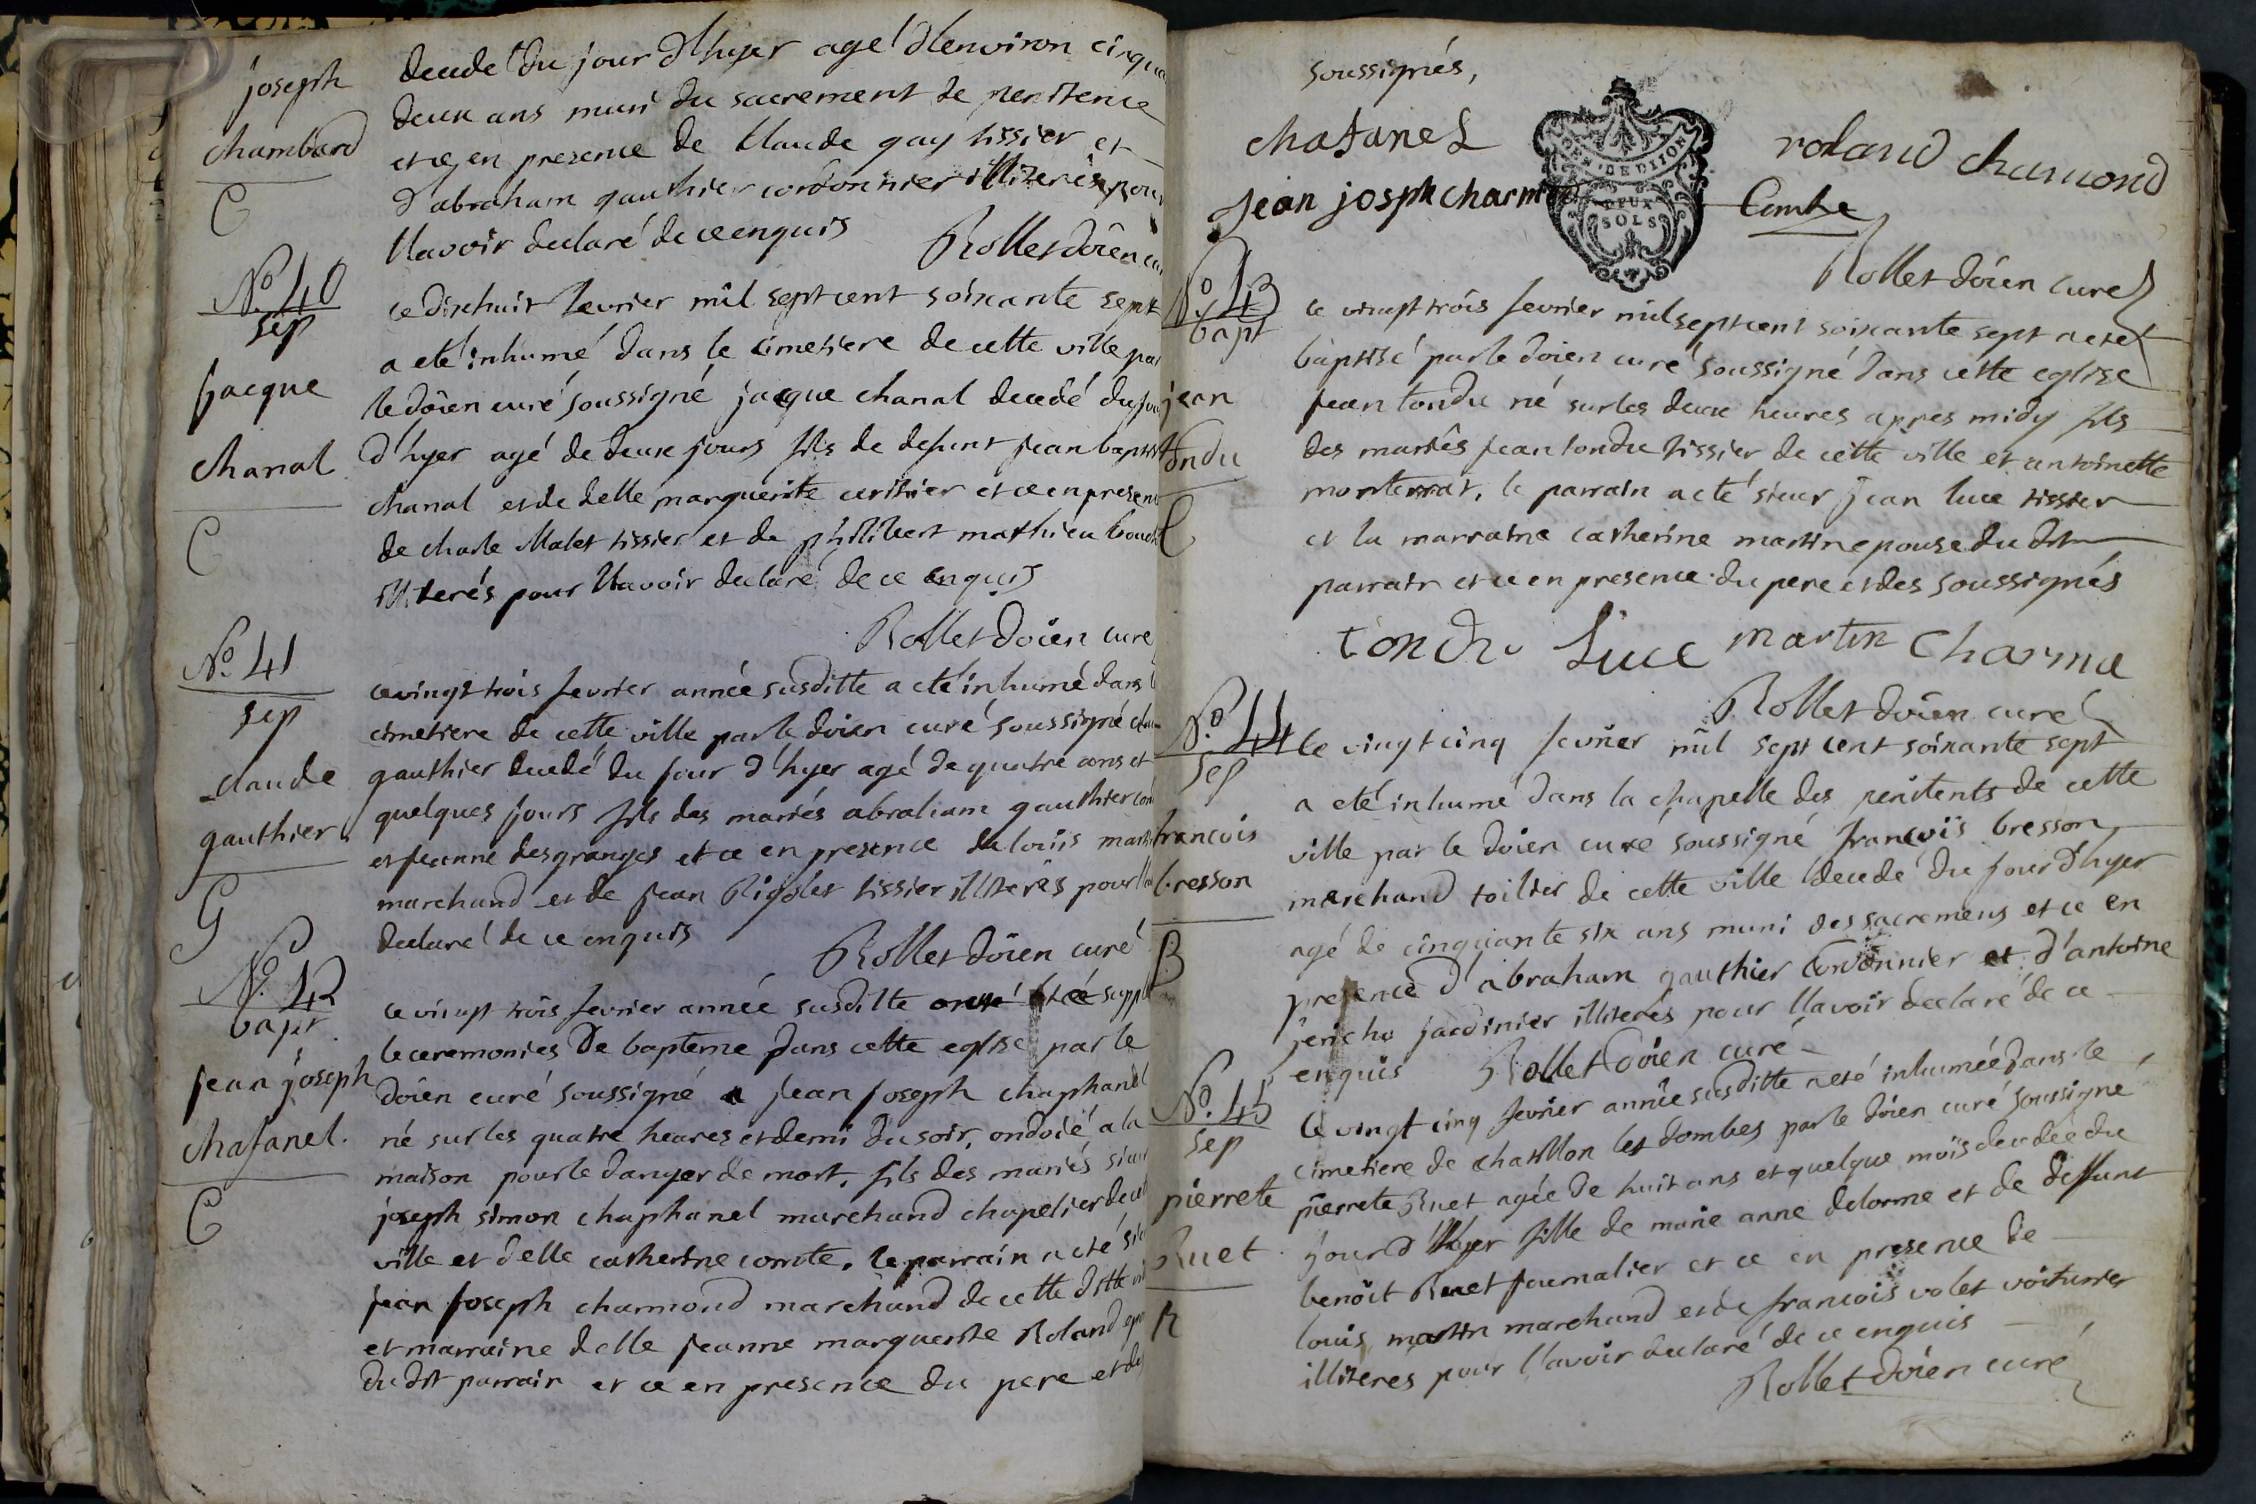 joseph
chambard
C
decedé du jour d'hyer agé d'environ cinqua
deux ans muni du sacrement de penitence
et ce en presence de Claude gay tissier et
d'abraham gauthier cordonnier illiterés pour
l'lavoir declaré de ce enquis Rollet doïen cu
No. 40
sep
jacque
chanal
C
ce dixhuit fevrier mil sept cent soixante sept
a eté inhumé dans le cimetiere de cette ville par
le doïen curé soussigné jacque chanal decedé du jou
d'hyer agé de deux jours fils de defunt jean baptis
chanal et de delle marguerite et ce en presen
de charle Malet tissier et de philibert mathieu bouch
illiterés pour l'lavoir declaré de ce enquis
Rollet doïen curé
No. 41
sep
claude
gauthier
G
ce vingt trois fevrier année susditte a eté inhumé dans l
cimetiere de cette ville par le doïen curé soussigné clau
gauthier decedé du jour d'hyer agé de quatre ans et
quelques jours fils des mariés abraham gauthier cor
et jeanne desgranges et ce en presence de loüis marti
marchand et de jean Rigolet tissier illiterés pour l'la
declaré de ce enquis
Rollet doïen curé
No. 42
bapt
jean joseph
chafanel.
C
ce vingt trois fevrier année susditte suppl
le ceremonies De bapteme dans cette eglise par le
doïen curé soussigné a jean joseph chaphanel
né sur les quatre heures et demi du soir, ondoié a la
maison pour le danger de mort, fils des mariés sieur
joseph simon chaphanel marchand chapelier de cet
ville et delle catherine comte, le parrain a eté sie
jean joseph charmond marchand de cette ditte vil
et marraine delle jeanne marguerite Roland epo
du dit parrain et ce en presence du pere et des
soussignés,
chafanel
roland charmond
GEN. DE DIJON
DEUX
SOLS
jean josph charmo
Combe
Rollet doïen curé
No. 43
bapt
jean
tondu
C
ce vingt trois fevrier mil sept cent soixante sept a eté
baptisé par le doïen curé soussigné dans cette eglise
jean tondu né sur les deux heures appres midy fils
des mariés jean tondu tissier de cette ville et antoinette
monterrat, le parrain a eté sieur jean luce tissier
et la marraine catherine martin epouse du dit
parrain et ce en presence du pere et des soussignés
tondu Luce martin Charme
Rollet doïen curé
No. 44
sep
francois
bresson
B
Ce vingt cinq fevrier mil sept cent soixante sept
a eté inhumé dans la chapelle des penitents de cette
ville par le doïen curé soussigné françois bresson
marchand toilier de cette ville decedé du jour d'hyer
agé de cinquante six ans muni des sacremens et ce en
presence d'abraham gauthier cordonnier et d'antoine
jericho jardinier illiterés pour l'lavoir declaré de ce
enquis Rollet doïen curé
No. 45
sep
pierrete
Ruet
R
Ce vingt cinq fevrier année susditte a eté inhumée dans le
cimetiere de chatillon les dombes par le doïen curé soussigné
pierrete Ruet agée de huit ans et quelque moïs decedée du
jour d'hyer fille de marie anne delorme et de deffunt
benoït Ruet journalier et ce en presence de
louis martin marchand et de francois volet voiturier
illiterés pour l'lavoir declaré de ce enquis
Rollet doïen curé